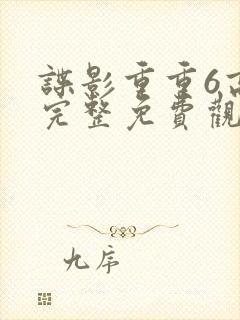 諜影重重6高
完整免費觀
九序